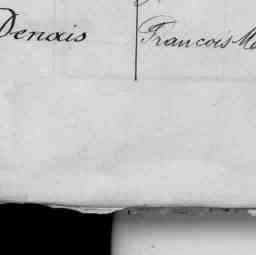 Denais François